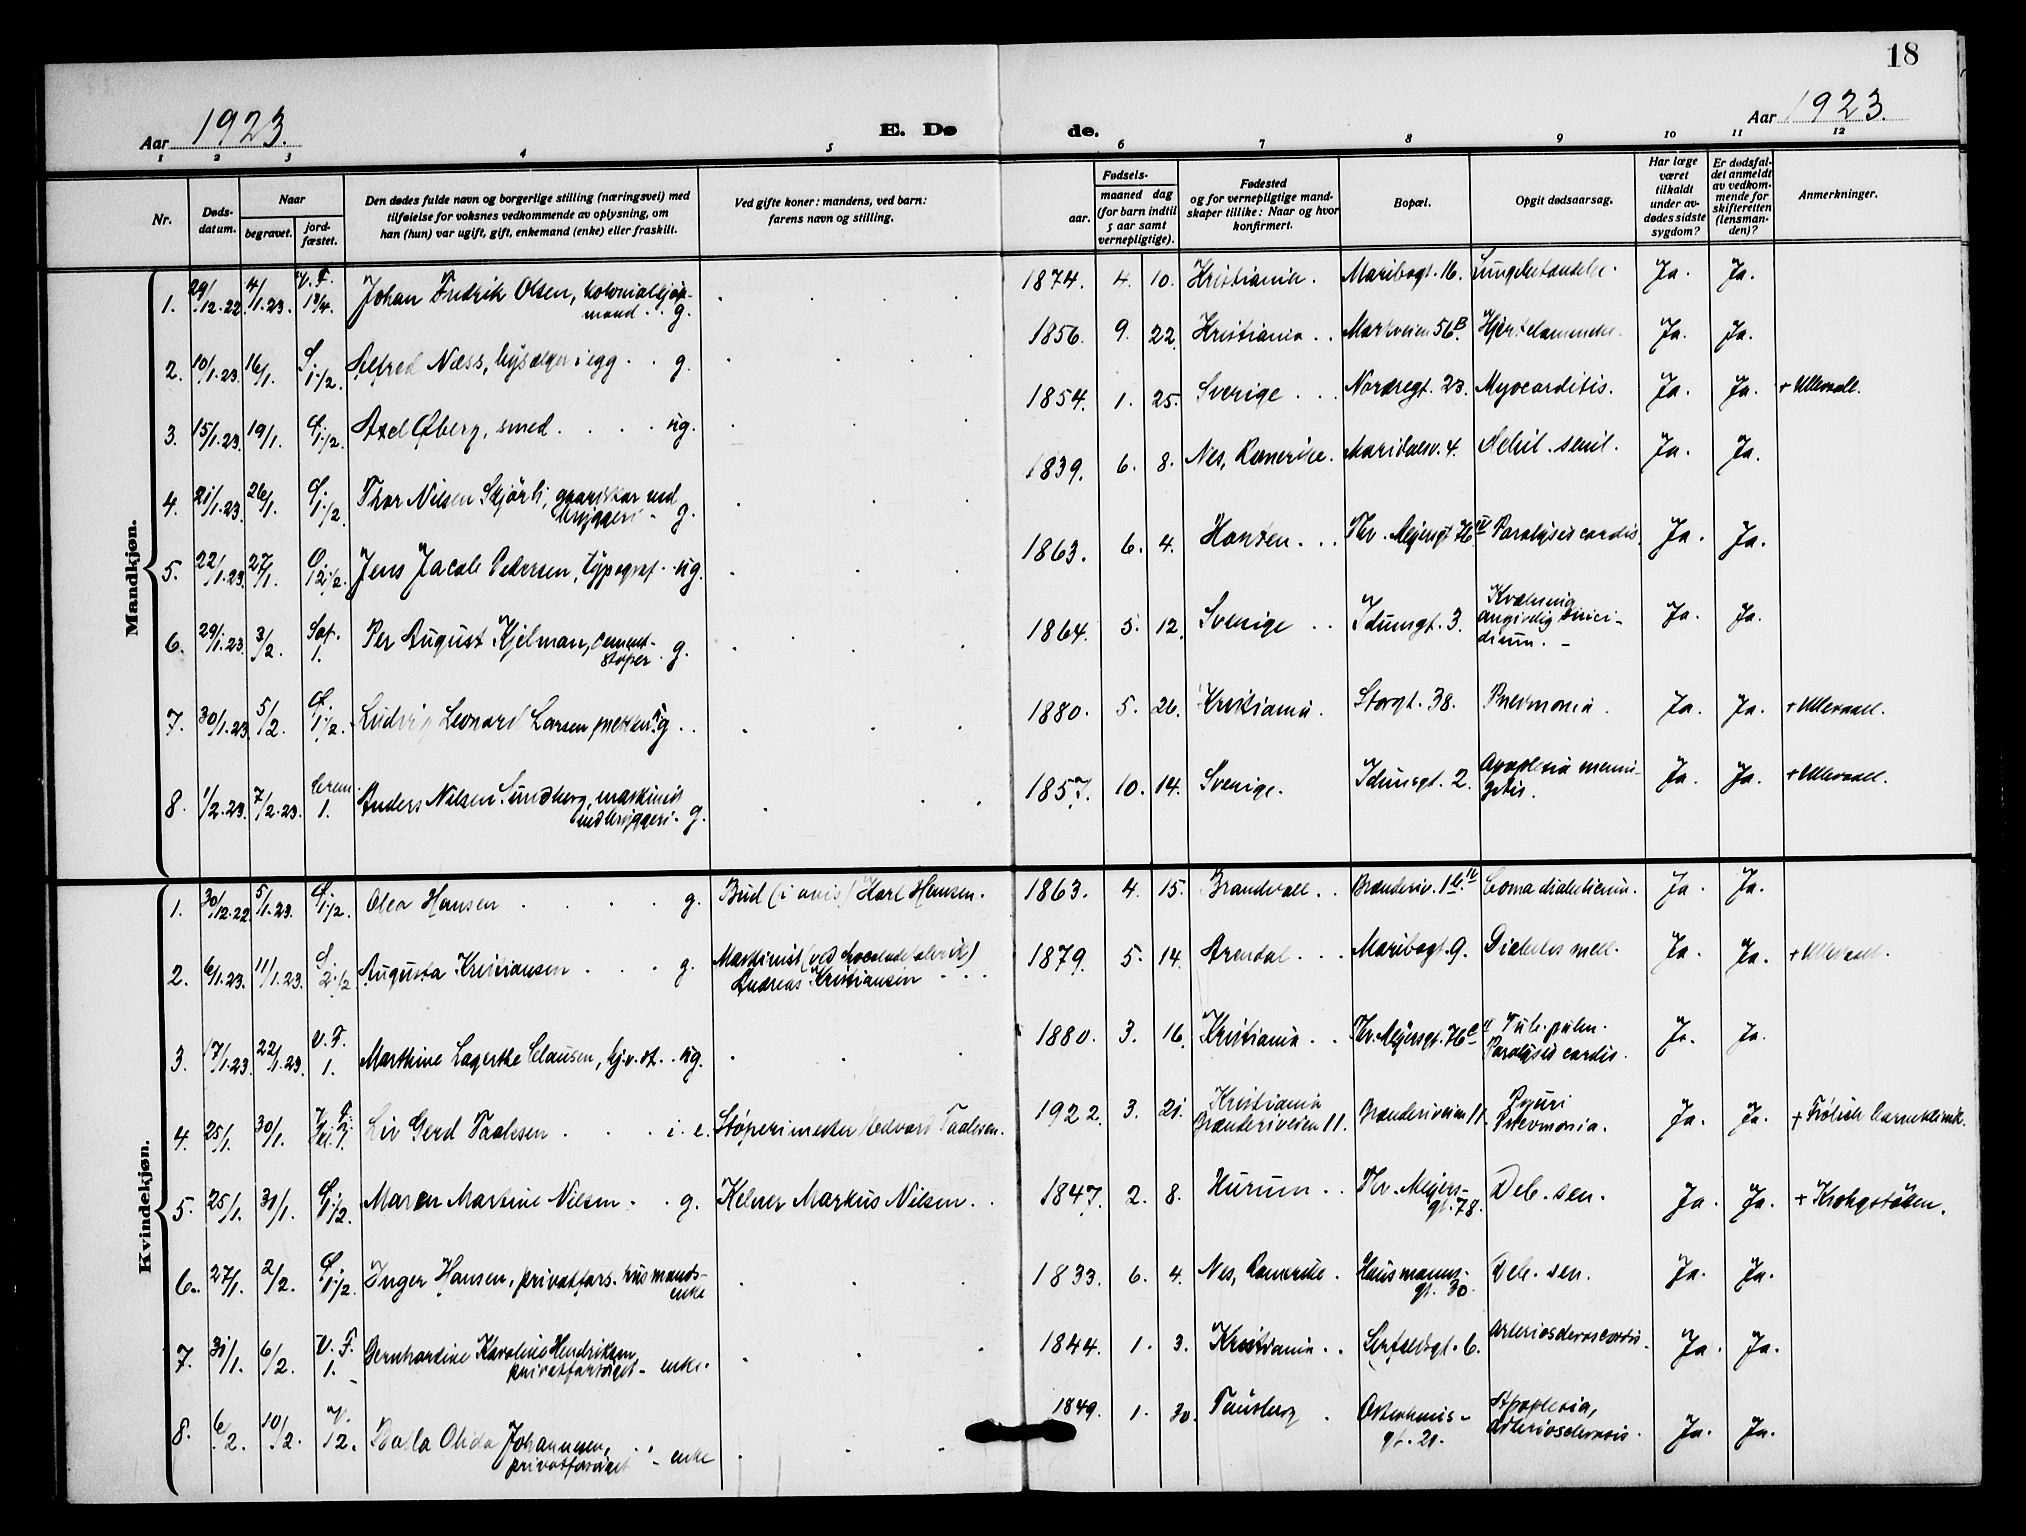 18
Aar 1923. E. Dø de. Aar 1923.
1 2 3 4 5 6 7 8 9 10 11 12
Nr.
Døds-
datum.
Naar
begravet.
jord-
fæstet.
Den dødes fulde navn og borgerlige stilling (næringsvei) med
tilføielse for voksnes vedkommende av oplysning, om
han (hun) var ugift, gift, enkemand (enke) eller fraskilt.
Ved gifte koner: mandens, ved barn:
farens navn og stilling.
Fødsels-
aar.
maaned dag
(for barn indtil
5 aar samt
vernepligtige).
Fødested
og for vernepligtige mand-
skaper tillike: Naar og hvor
konfirmert.
Bopæl.
Opgit dødsaarsag.
Har læge
været
tilkaldt
under av-
dødes sidste
sygdom?
Er dødsfal-
det anmeldt
av vedkom-
mende for
skifteretten
(lensman-
den)?
Anmerkninger.
Mandkjøn.
1. 29/12.22 4/1.23. V.F. 18/4. Johan Fredrik Olsen, kolonialkjøp-
mand . . g. 1874. 4. 10. Kristiania. Maribogt. 16. Lungebetændelse. Ja. Ja.
2. 10/1.23. 16/1. Alfred Næss, bysælger i egg . . g. 1856. 9. 22. Kristiania . . Markveien 56B. Ja. Ja.
3. 15/1.23. 19/1. Axel Øberg, smed . . . . ug. 1854. 1. 25. Sverige . . . Nordregt. 23. Myocarditis. Ja. Ja. + Ullevaal.
4. 21/1.23. 26/1. Thor Nilsen Skjørli, gaardskar ved
bryggeri - g. 1839. 6. 8. Nes, Romerike. Maridalsv. 4. Debil. senil. Ja. Ja.
5. 22/1.23. 27/1. Jens Jacob Pedersen, typograf . . ug. 1863. 6. 4. Horten. . . Thv. Meyersgt. Paralysis cordis. Ja. Ja.
6. 29/1.23. 3/2. Sof. 1. Per August Kjelman, cement-
støper . g. 1864. 5. 12. Sverige . . Idunsgt. 3. Kvælning
angivelig suici-
dium. - Ja. Ja.
7. 30/1.23. 5/2. Ludvig Leonard Larsen ug . . 1880. 5. 26. Kristiania. Storgt. 38. Pnevmonia. Ja. Ja. + Ullevaal.
8. 1/2.23. 7/2.23. Crem. 1. Anders Nilsen Sundberg, maskinist
ved bryggeri - g. 1857. 10. 14. Sverige. Idunsgt. 2. Apoplexia menin-
getis. Ja. Ja. + Ullevaal.
Kvindekjøn.
1. 30/12.22. 5/1.23. Olea Hansen . . . . g. Bud (i avis) Karl Hansen. 1863. 4. 15. Brandvall . . Coma diabeticum. Ja. Ja.
2. 6/1.23. 11/1.23. Augusta Kristiansen . . . g. Maskinist (ved chocoladefabrik)
Andreas Kristiansen . . . 1879. 5. 14. Arendal . . . Maribogt. 9. Diabetes mell. Ja. Ja. + Ullevaal.
3. 17/1.23. 22/1.23. V.F. 1. Marthine Lagertha Clausen, hj.v.st. . ug. 1880. 3. 16. Kristiania . . Thv. Meyersgt. Tub. pulm.
Paralysis cordis. Ja. Ja.
4. 25/1. 30/1. Liv Gerd Taalesen . . . i. e. Støperimester Edvard Taalesen. 1922. 3. 21. Kristiania
Grænderiveien 11. Grænderiveien 11. Pyuri
Pnevmonia. Ja. Ja. + Frölich barneklinik.
5. 25/1. 31/1. Maren Martine Nilsen . . g. Kelner Markus Nilsen . . 1847. 2. 8. Hurum . . Thv. Meyers-
gt. 78. Deb. sen. Ja. Ja. + Krohgstøtten.
6. 27/1. 2/2. Inger Hansen, privatfors. husmands-
enke 1833. 6. 4. Nes, Romerike. Hausmanns-
gt. 30. Deb. sen. Ja. Ja.
7. 31/1. 6/2. V.F. 1. Bernhardine Karoline Hendriksen
privatforsørget - enke. 1844. 1. 3. Kristiania . . 6. Arteriosclerosis cordis. Ja. Ja.
8. 6/2. 10/2. V. 12. Olida Johannesen,
privatforsørget - enke 1849. 1. 30. Tønsberg . Osterhaus-
gt. 21. Apoplexia,
Arteriosclerosis. Ja. Ja.